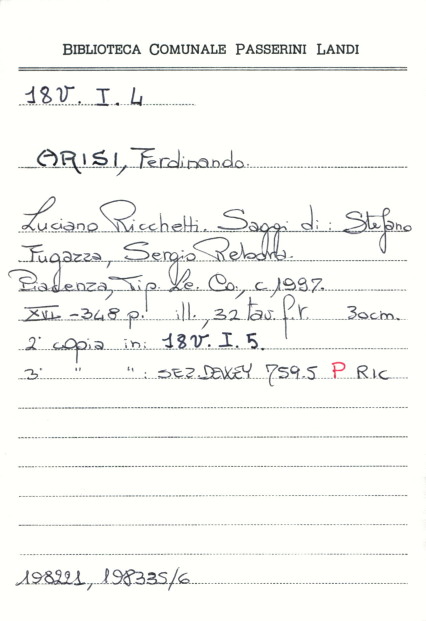 BIBLIOTECA COMUNALE PASSERINI LANDI
18V. I. 4
ARISI, Ferdinando.
Luciano Ricchetti. Saggi di: Stefano
Fugazza, Sergio Rebora.
Piacenza, Tip. Le. Co., c, 1997.
XVI - 348 p. ill., 32 tav. f.t. 30cm.
2ª copia in: 18V. I. 5.
3ª " " : SEZ DEWEY 759.5 P RIC
198221, 198335/6